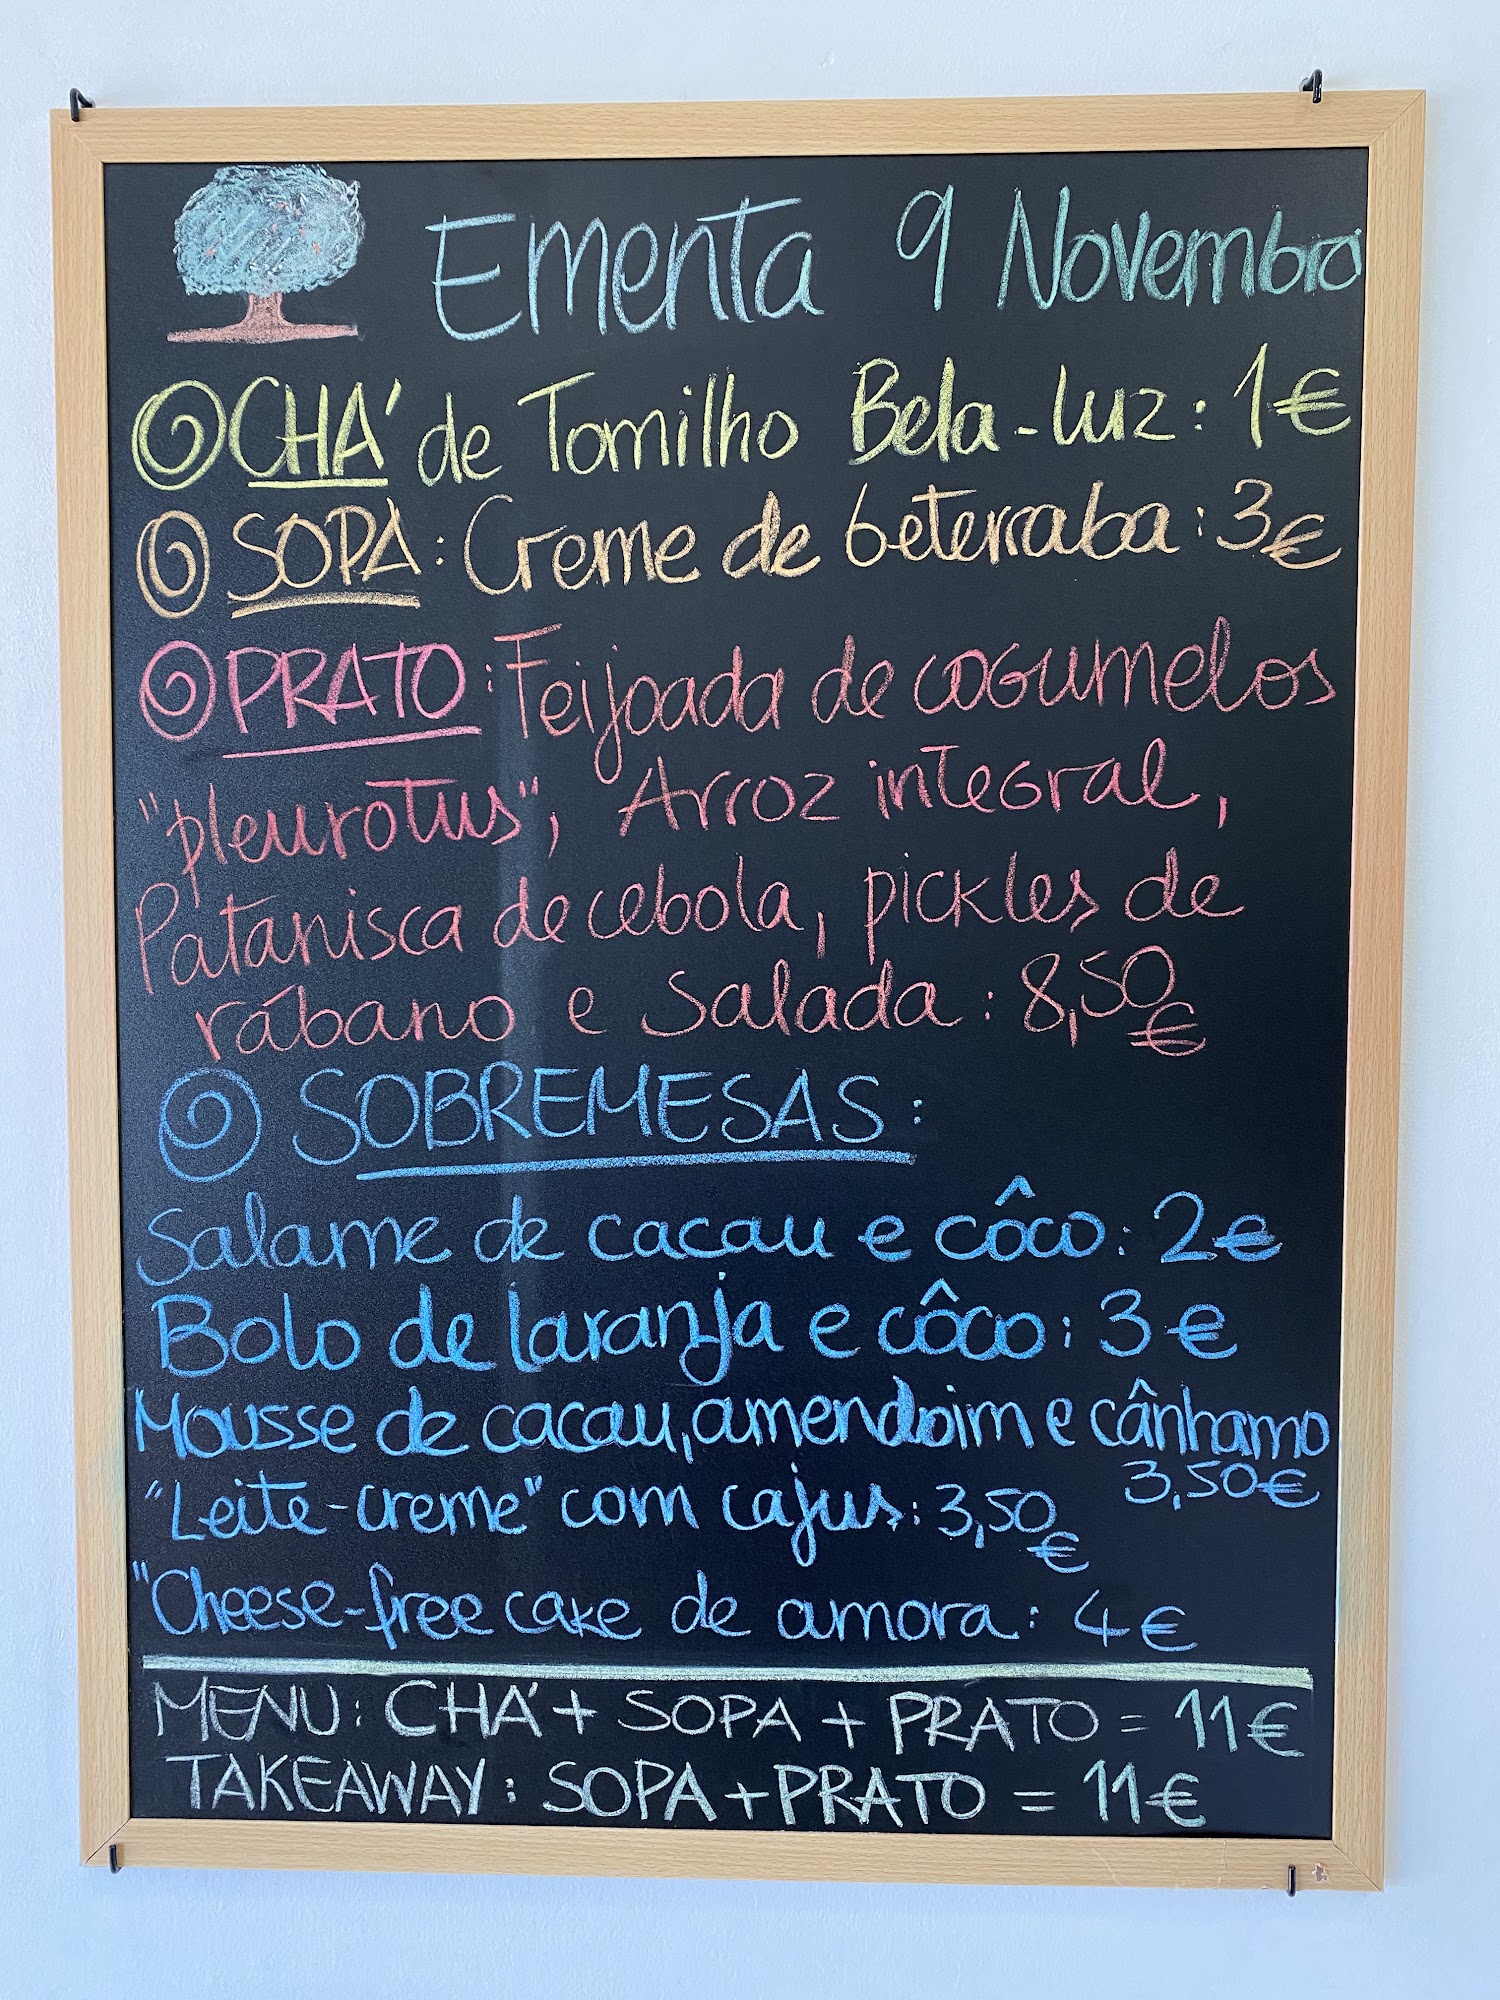 Ementa 9 Novembro
CHÁ de Tomilho Bela-Luz: 1€
SOPA: Creme de beterraba: 3€
PRATO: Feijoada de cogumelos
"pleurotus", Arroz integral,
Patanisca de cebola, pickles de
rábano e Salada: 8,50€
SOBREMESAS:
Salame de cacau e côco: 2€
Bolo de laranja e côco: 3€
Mousse de cacau, amendoim e cânhamo
3,50€
"Leite-creme" com cajus: 3,50€
"Cheese-free cake de amora: 4€
MENU: CHÁ + SOPA + PRATO = 11€
TAKEAWAY: SOPA + PRATO = 11€